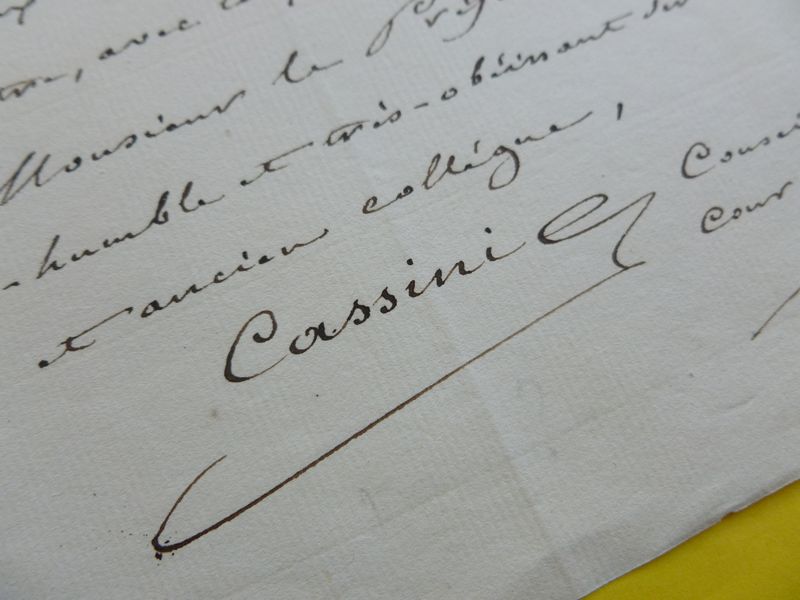 avec
Monsieur le
humble et très-obéissant
et ancien collégue,
Cassini
Cour